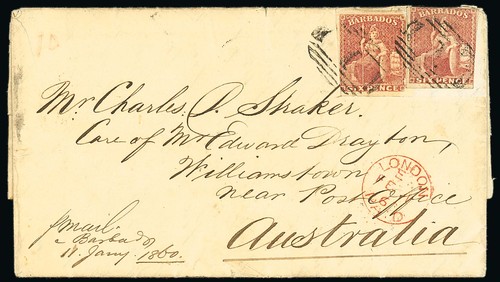 BARBADOS
SIX PENCE
BARBADOS
SIX PENCE
Mr. Charles. D. Straker.
Care of Mr Edward Drayton,
Williamstown
near Post Office
Australia
LONDON
PAID
p mail.
Barbados
11. Jany. 1860.